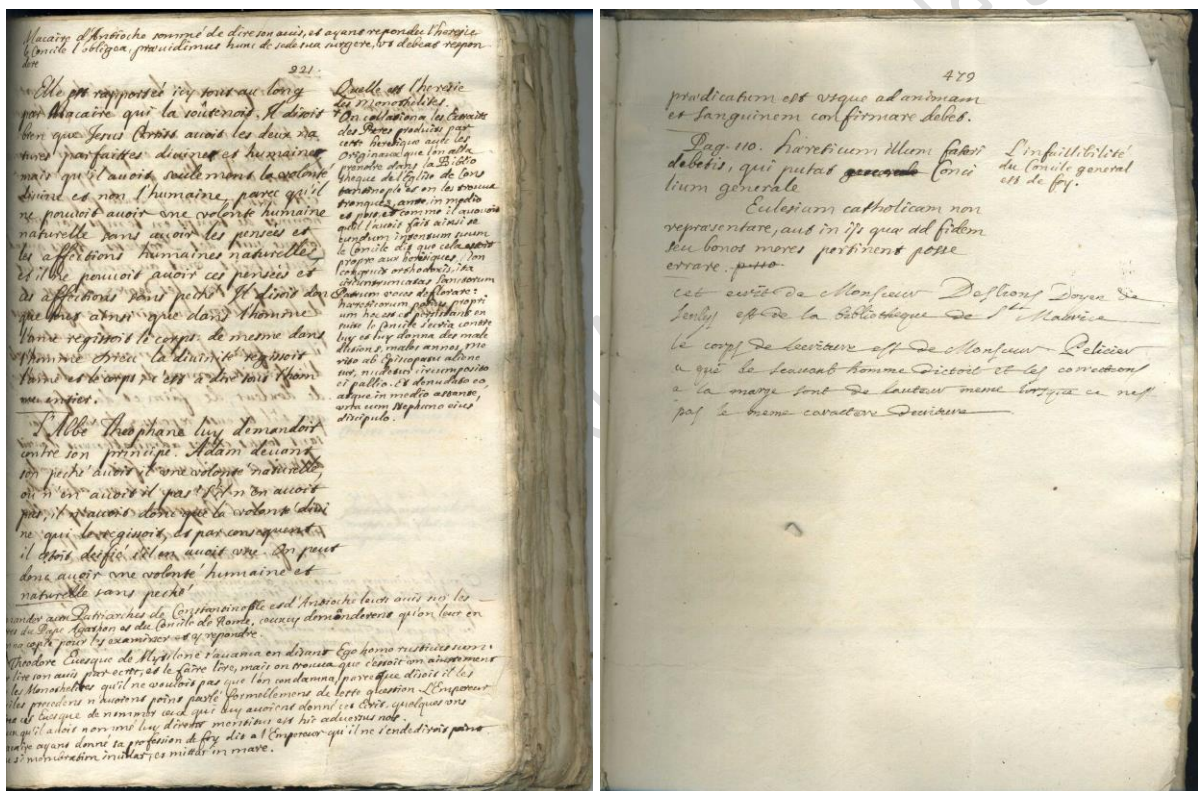 Macaire d'Antioche sommé de dire son avis, et ayant repondu l'heresie
le Concile l'obligea, prævidimus hunc de sede sua surgere, vt debeat respon
dere
221.
Elle est rapportée icy tout au long
par Macaire qui la soûtenoit. Il disoit
bien que Jesus Christ avoit les deux na
tures parfaittes divine et humaine
mais qu'il avoit seulement la volonté
divine et non l'humaine, parce qu'il
ne pouvoit avoir vne volonte humaine
naturelle sans avoir les pensées et
les affections humaines naturelles
et il ne pouvoit avoir ces pensées et
ces affections sans peché. Il disoit don
que tout ainsi que dans l'homme
l'ame regissoit le corps: de mesme dans
l'homme Dieu la divinité regissoit
l'ame et le corps c'est a dire tout l'hom
me entier.
L'Abbé Theophane luy demandoit
contre son principe. Adam devant
son peché avoit il vne volonté naturelle,
ou n'en avoit il pas? S'il n'en avoit
pas, il n'avoit donc que la volonté divi
ne qui le regissoit, et par consequent
il estoit deifié s'il en avoit vne. On peut
donc avoir vne volonté humaine et
naturelle sans peché
Quelle est l'heresie
des Monothelites.
On collationa les Extraits
des Peres produits par
cette heretique avec les
Originaux que l'on alla
prendre dans la Biblio
theque de l'Eglise de Cons
tantinople et on les trouva
tronquez, ante, in medio
et post, et comme il avouoit
qu'il l'avoit fait ainsi se
cundum intentum suum
le Concile dit que cela estoit
propre aux heretiques, Non
congruit orthodoxis, ita
circumtruncatas Sanctorum
Patrum voces deflorare:
hæreticorum potius propri
um hoc est et persistant en
suite le Concile s'ecria contre
luy et luy donna des male
dictions, malos annos, me
rito ab Episcopatu aliene
tur, nudetur circumposito
ei pallio. Et denudato eo,
atque in medio astante,
vna cum Stephano eius
discipulo.
mander aux Patriarches de Constantinople et d'Antioche leurs avis sur les
du Pape Agathon et du Concile de Rome, ceux cy demanderent qu'on leur en
copie pour les examiner et y repondre.
Theodore Evesque de Mytilene s'avança en disant Ego homo rusticus sum.
lire son avis par ecrit, et le faire lire, mais on trouva que c'estoit un
les Monothelites qu'il ne vouloit pas que l'on condamna, parce que disoit il les
precedens n'avoient point parlé formellement de cette question. L'Empereur
Evesque de nommer ceux qui luy avoient donné cet Ecrit. quelques vns
qu'il avoit nommé luy dirent mentitus est hic adversus nos.
ayant donné sa profession de foy dit a l'Empereur qu'il ne s'en dediroit point.
si membratim incidar, et mittar in mare.
479
prædicatum est vsque ad animam
et Sanguinem confirmare debet.
Pag. 110. hæreticum illum fateri
debetis, qui putat generale Conci
lium generale
Eclesium catholicam non
repræsentare, aut in ijs quæ ad fidem
seu bonos mores pertinent posse
errare. posse
L'infaillibilité
du Concile general
est de foy.
cet ecrit de Monsieur Deslions Doyen de
Senlys est de la bibliotheque de Ste Maurice
le corps de lecriture est de Monsieur Pelicier
a qui le scavant homme dictoit et les corrections
a la marge sont de lauteur meme lorsque ce nest
pas le meme caractere decriture